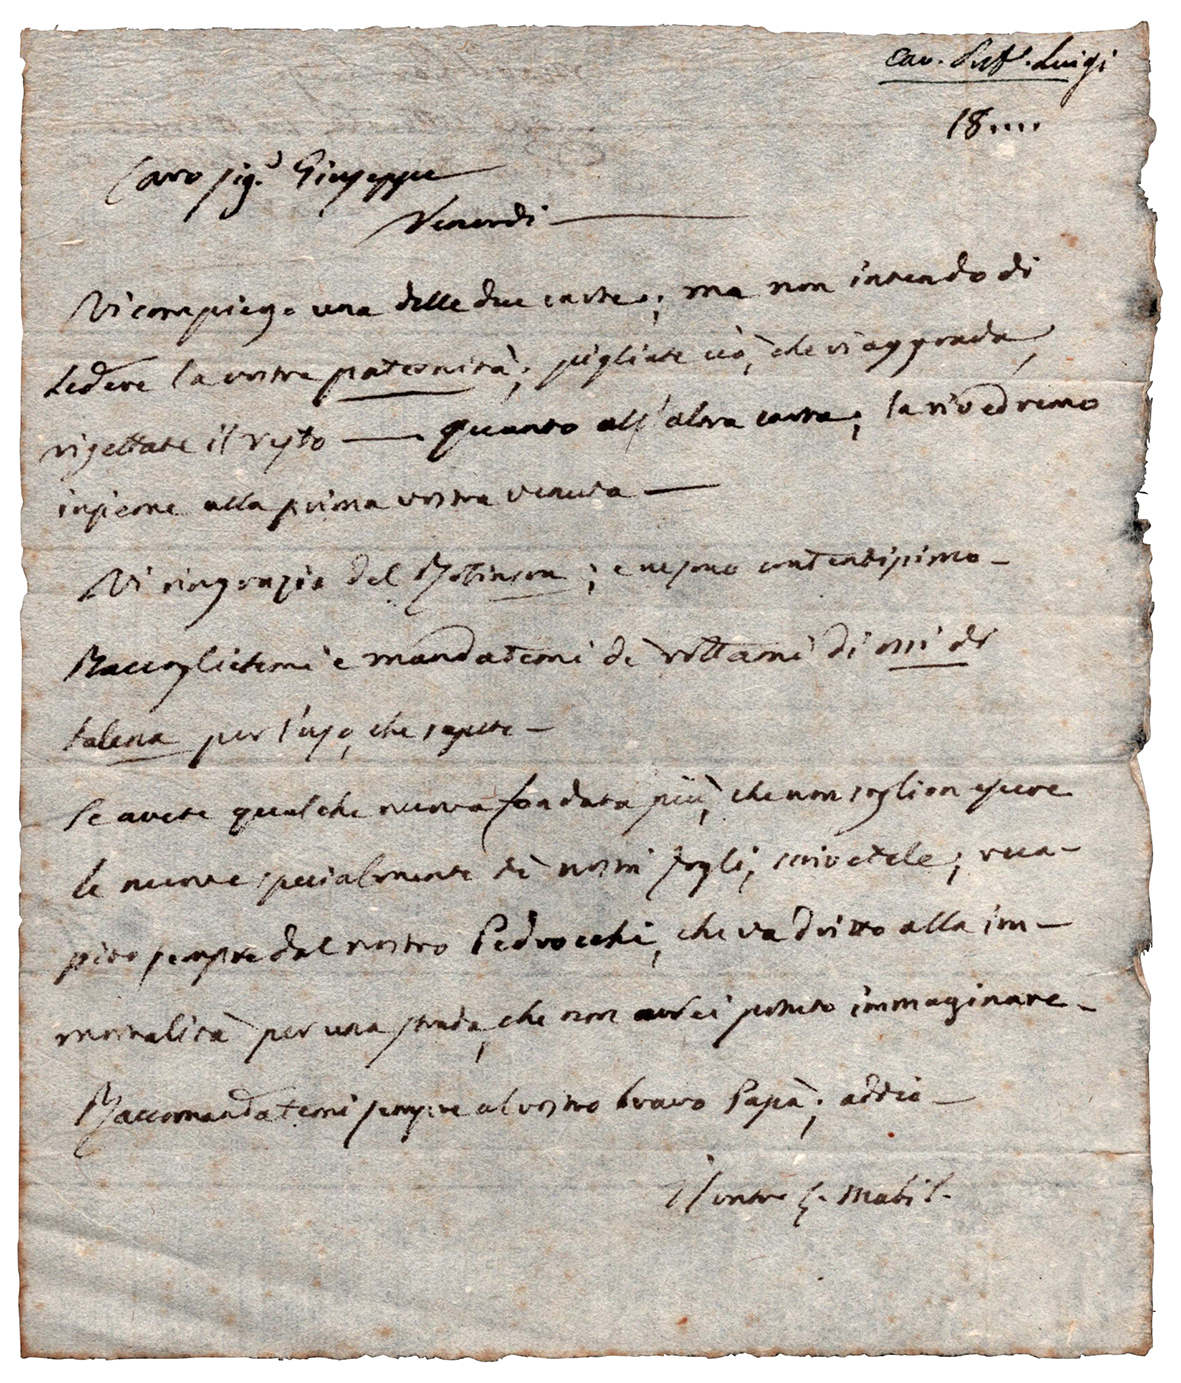 Cav. Prof. Luigi
18....
Caro sig.r Giuseppe
Venerdi —
Vi compiego una delle due carte; ma non intendo di
ledere la vostra paternità; pigliate ciò, che vi aggrada,
rigettate il resto — quanto all'altra carta; la rivedremo
insieme alla prima vostra venuta —
Vi ringrazio del Robinson; e ne sono contentissimo —
Raccoglietemi e mandatemi de' rottami di ossi di
balena per l'uso, che sapete —
Se avete qualche nuova fondata più, che non soglion essere
le nuove specialmente de' nostri fogli, scrivetele; reca-
pito sempre dal nostro Pedrocchi, che va dritto alla im-
mortalità per una strada, che non avrei potuto immaginare —
Raccomandatemi sempre al vostro bravo Papà; addio —
Il vostro L. Mabil.